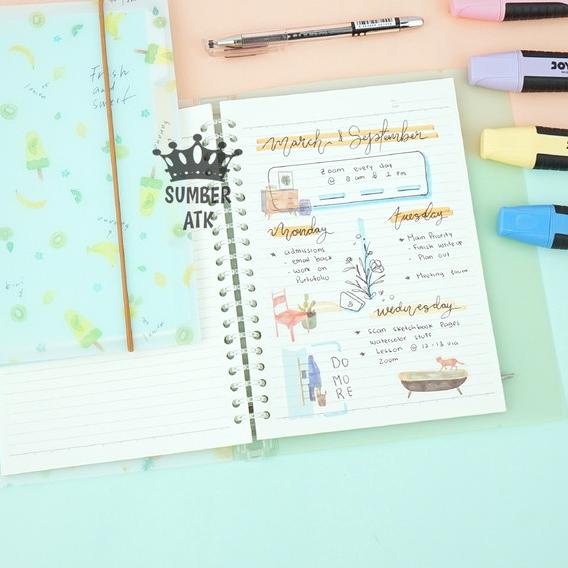 Fresh
and
sweet
lemon
SUMBER
ATK
March & September
Zoom every day
@ 8 am & 2 PM
Monday
* admissions
- email back
- work on
Portofolio
Tuesday
* Main Priority
- Finish
- Plan out
* Meeting
Wednesday
* Scan sketchbook Pages
watercolor stuff
* Lesson @ 12-13 via
Zoom
DO
MO
RE
JOY